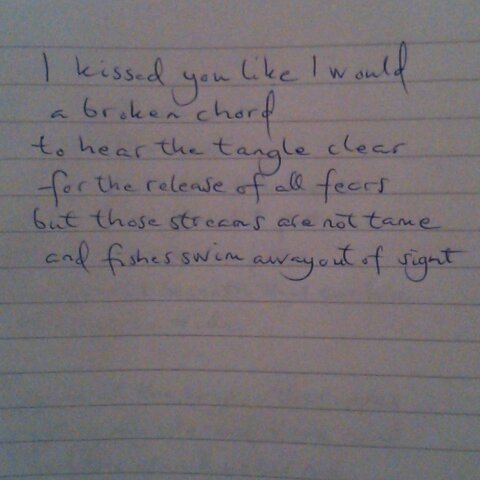 I kissed you like I would
a broken chord
to hear the tangle clear
for the release of all fears
but those streams are not tame
and fishes swim away out of sight